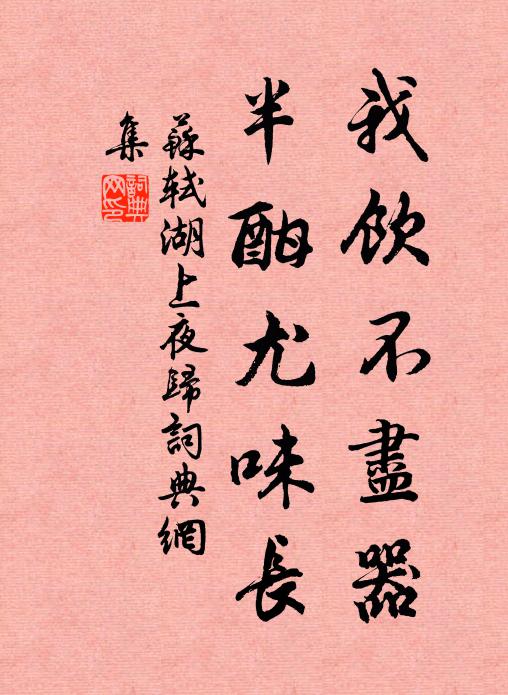 我飲不盡器
半酣尤味長
蘇軾湖上夜歸詞典網
集
詞典
网印